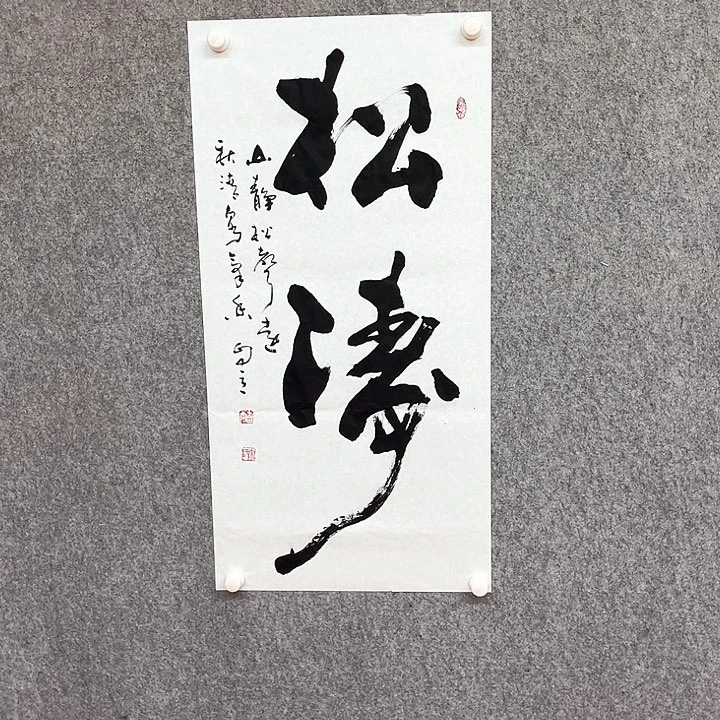 松濤
山靜松聲遠
秋清泉氣香